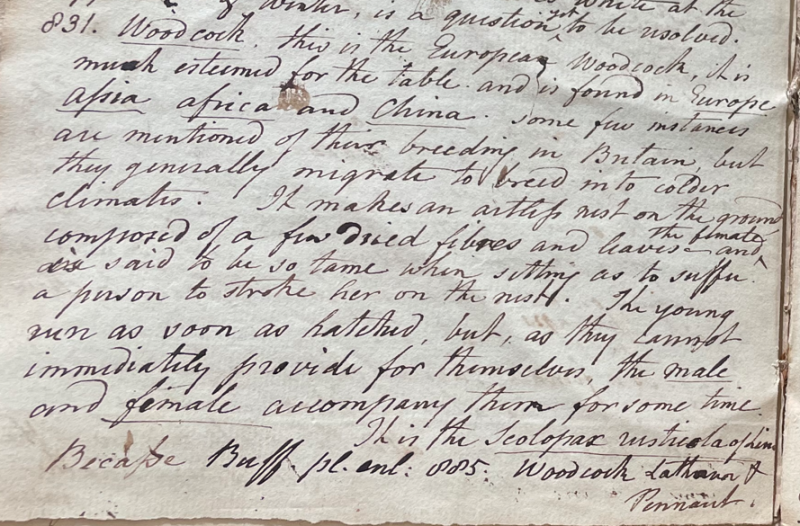 of Winter, is a question yet to be resolved.
831. Woodcock. this is the European Woodcock, it is
much esteemed for the table and is found in Europe
Assia africa and China. Some few instances
are mentioned of their breeding in Britain, but
they generally migrate to breed into colder
climates. It makes an artless nest on the ground
composed of a few dried fibres and leaves and the female
is said to be so tame when sitting as to suffer
a person to stroke her on the nest. The young
run as soon as hatched, but, as they cannot
immediately provide for themselves, the male
and female accompany them for some time.
It is the Scolopax rusticola of Linn
Becasse Buff. pl. enl: 885. Woodcock Latham &
Pennant.